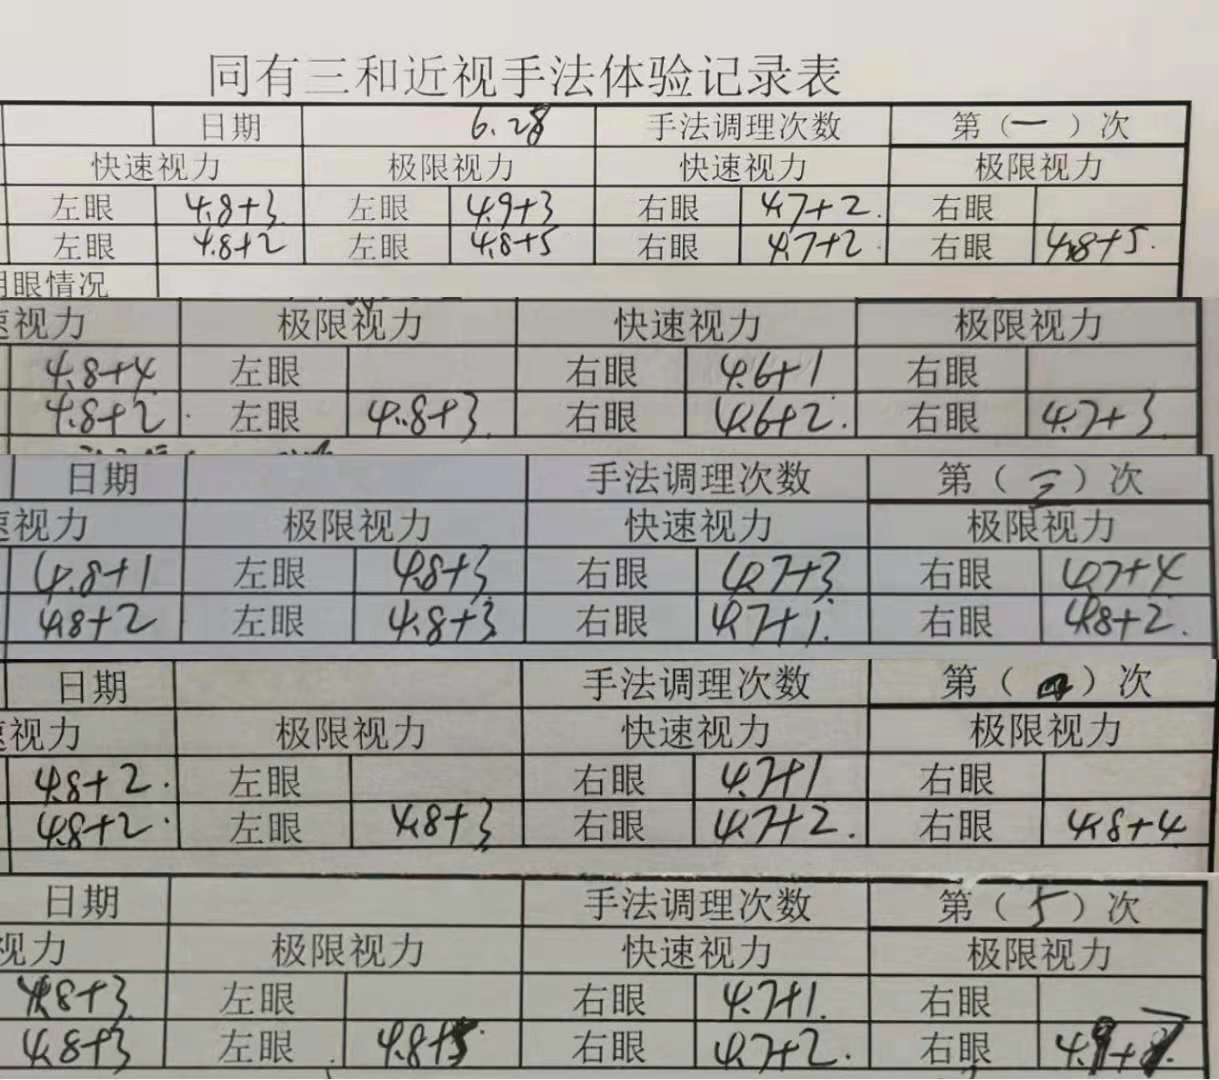 同有三和近视手法体验记录表
日期 6.28 手法调理次数 第（一）次
快速视力 极限视力 快速视力 极限视力
左眼 4.8+3 左眼 4.9+3 右眼 4.7+2. 右眼
左眼 4.8+2 左眼 4.8+5 右眼 4.7+2 右眼 4.8+5.
眼情况
视力 极限视力 快速视力 极限视力
4.8+4 左眼 右眼 4.6+1 右眼
4.8+2. 左眼 4.8+3. 右眼 4.6+2. 右眼 4.7+3
日期 手法调理次数 第（三）次
视力 极限视力 快速视力 极限视力
4.8+1 左眼 4.8+3 右眼 4.7+3 右眼 4.7+4
4.8+2 左眼 4.8+3 右眼 4.7+1. 右眼 4.8+2.
日期 手法调理次数 第（四）次
视力 极限视力 快速视力 极限视力
4.8+2. 左眼 右眼 4.7+1 右眼
4.8+2. 左眼 4.8+3 右眼 4.7+2. 右眼 4.8+4
日期 手法调理次数 第（5）次
视力 极限视力 快速视力 极限视力
4.8+3 左眼 右眼 4.7+1. 右眼
4.8+3 左眼 4.8+5 右眼 4.7+2. 右眼